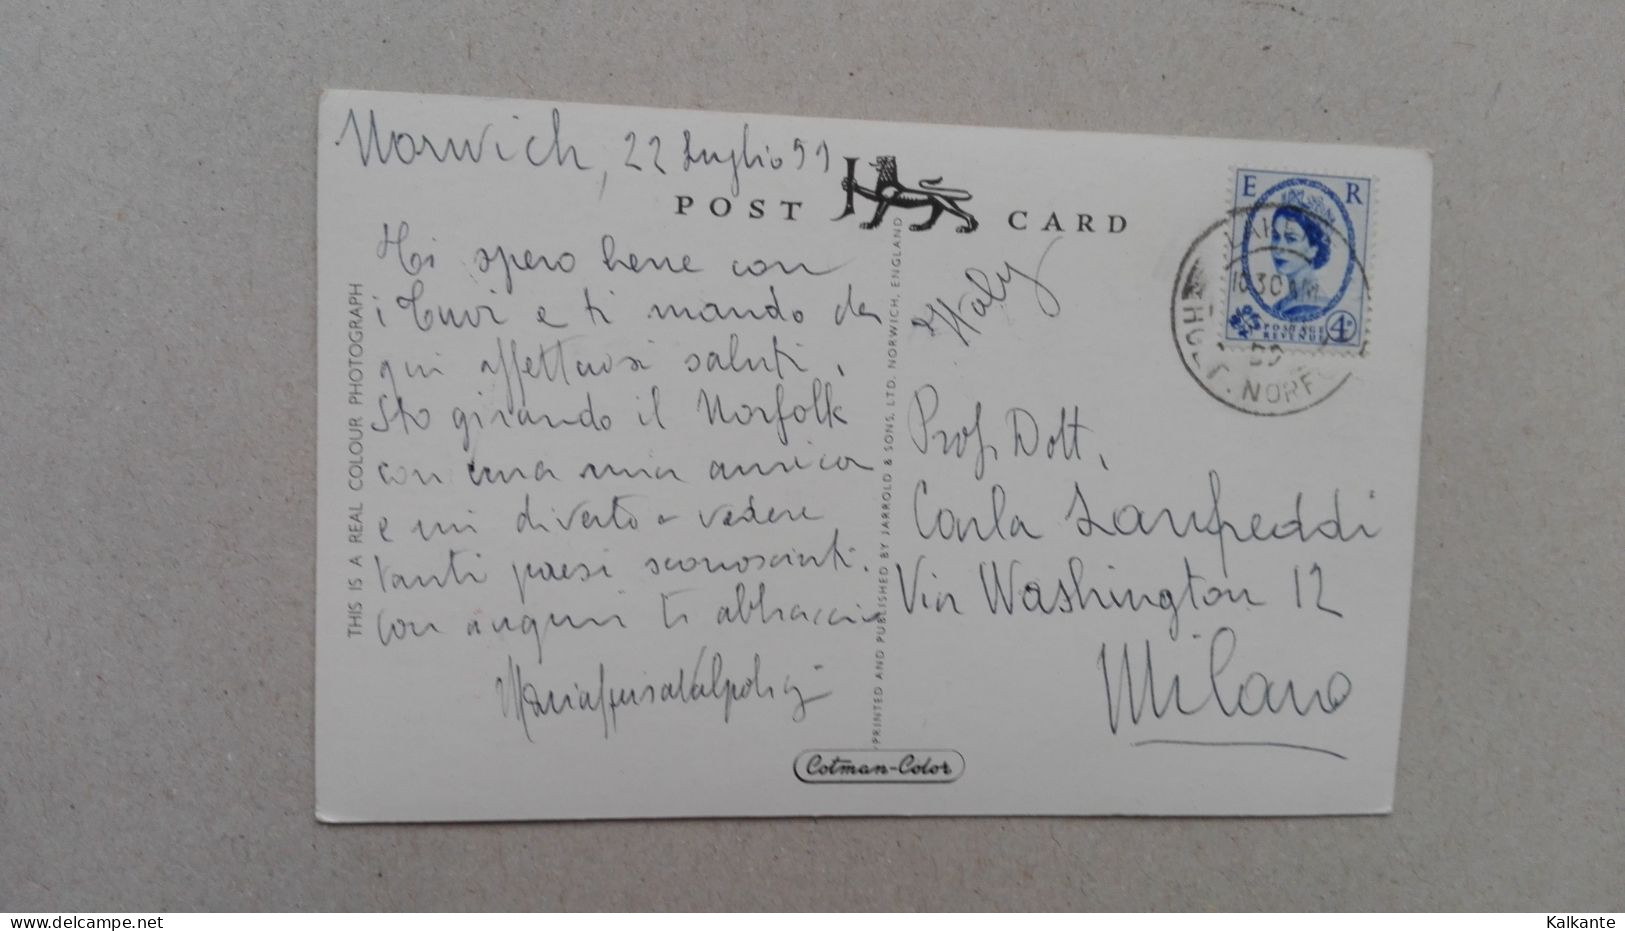 Norwich, 22 Luglio 59
POST CARD
Ti spero bene con
i Tuoi e ti mando da
qui affettuosi saluti.
Sto girando il Norfolk
con una mia amica
e mi diverto a vedere
tanti paesi sconosciuti.
Con auguri ti abbraccio
THIS IS A REAL COLOUR PHOTOGRAPH
PRINTED AND PUBLISHED BY JARROLD & SONS, LTD. NORWICH, ENGLAND
Cotman-Color
E R
POSTAGE
REVENUE
4D
10 30 AM
HOLT. NORFOLK
Italy
Prof. Dott.
Carla
Via Washington 12
Milano
Kalkante